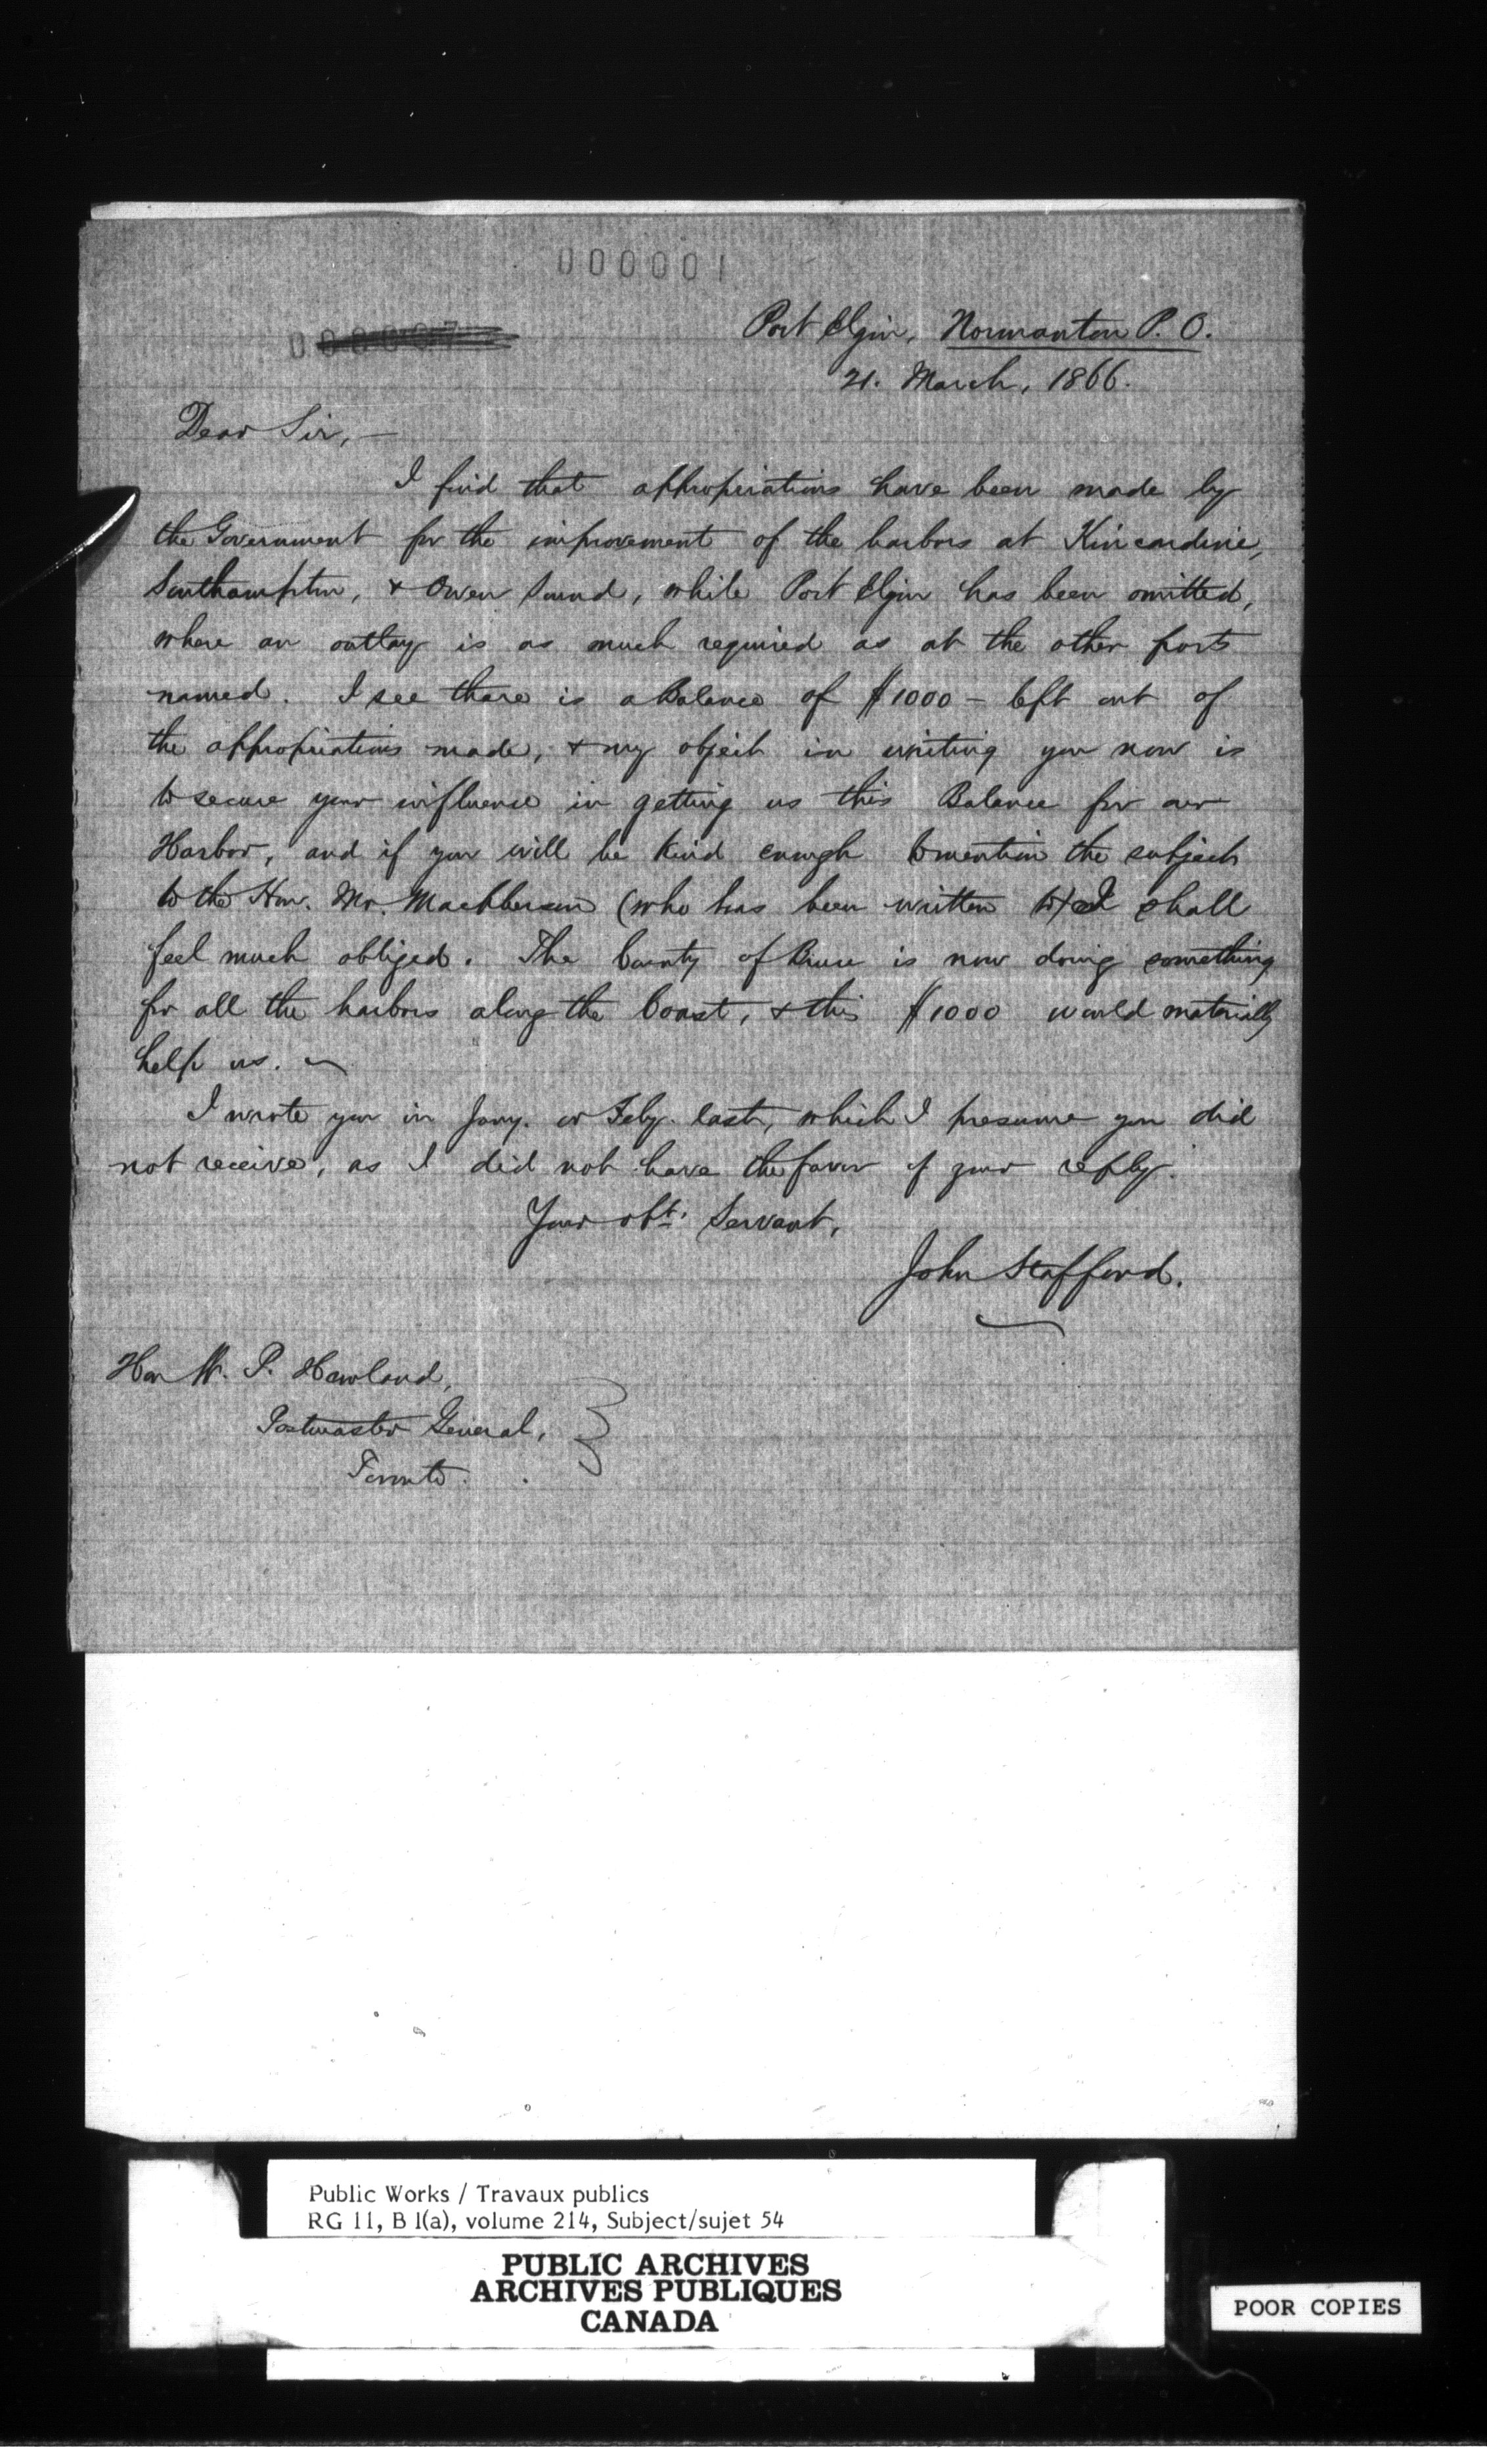 000001
Port Elgin, Normanton P. O.
21. March, 1866.
Dear Sir, —
I find that appropriations have been made by
the Government for the improvement of the harbors at Kincardine,
Southampton, & Owen Sound, while Port Elgin has been omitted,
where an outlay is as much required as at the other ports
named. I see there is a Balance of $1000 - left out of
the appropriations made, & my object in writing you now is
to secure your influence in getting us this Balance for our
Harbor, and if you will be kind enough to mention the subject
to the Hon. Mr. MacPherson (who has been written to) I shall
feel much obliged. The County of Bruce is now doing something
for all the harbors along the Coast, & this $1000 would materially
help us. —
I wrote you in Jany. or Feby. last, which I presume you did
not receive, as I did not have the favor of your reply.
Your obt. Servant,
John Stafford.
Hon W. P. Howland,
Postmaster General,
Toronto.
Public Works / Travaux publics
RG 11, B 1(a), volume 214, Subject/sujet 54
PUBLIC ARCHIVES
ARCHIVES PUBLIQUES
CANADA
POOR COPIES